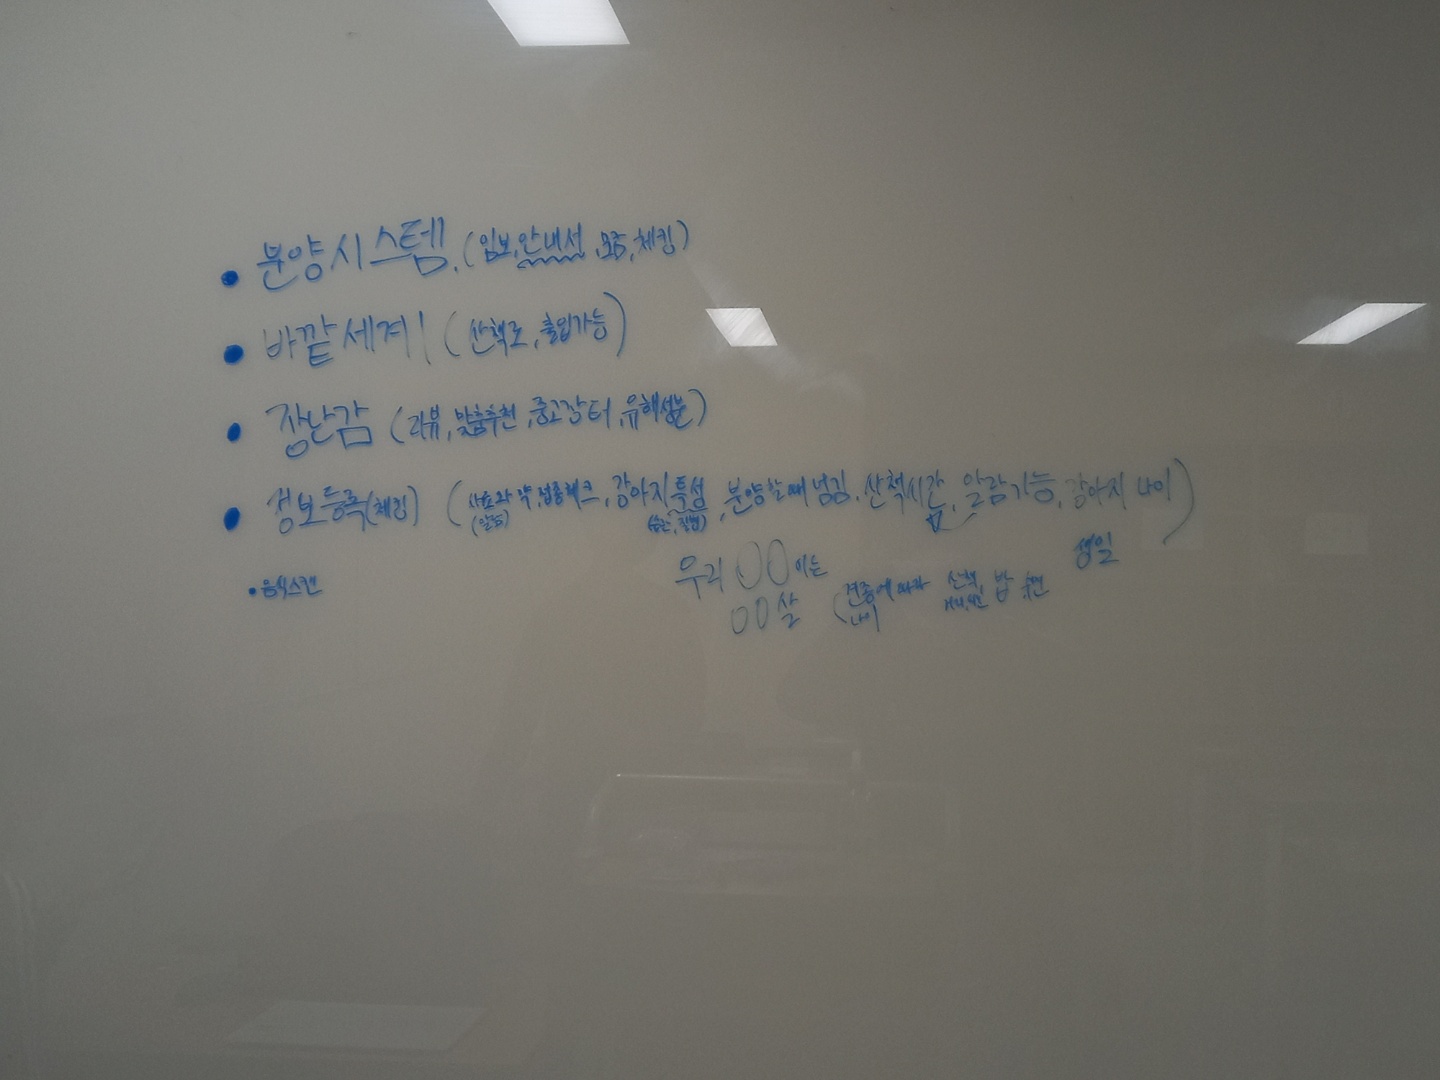 • 분양시스템. (임보, 안내선, 모종, 체킹)
• 바깥세계 (산책로, 출입가능)
• 장난감 (리뷰, 맞춤추천, 중고장터, 유해성분)
• 정보등록(체킹) (사료와 약, 접종체크, 강아지특성, 분양할때 넘김, 산책시간, 알람기능, 강아지 나이)
(알람)
(습관, 질병)
생일
• 음식스캔
우리 OO이는
OO살
(견종에 따라 산책, 밥 추천
나이